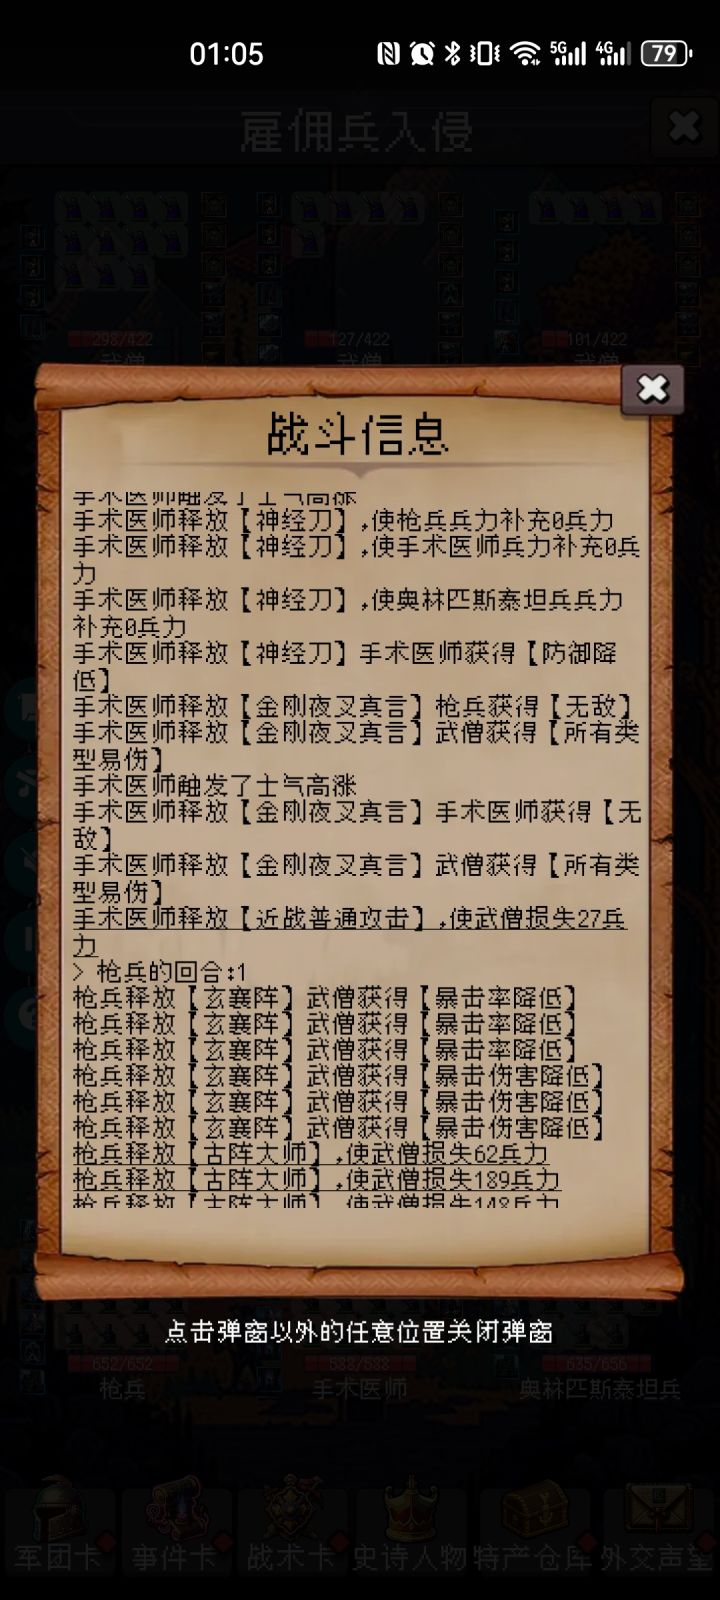 01:05
5G
4G
79
雇佣兵入侵
298/422
127/422
101/422
武僧
武僧
武僧
战斗信息
手术医师触发了士气高涨
手术医师释放【神经刀】,使枪兵兵力补充0兵力
手术医师释放【神经刀】,使手术医师兵力补充0兵
力
手术医师释放【神经刀】,使奥林匹斯泰坦兵兵力
补充0兵力
手术医师释放【神经刀】手术医师获得【防御降
低】
手术医师释放【金刚夜叉真言】枪兵获得【无敌】
手术医师释放【金刚夜叉真言】武僧获得【所有类
型易伤】
手术医师触发了士气高涨
手术医师释放【金刚夜叉真言】手术医师获得【无
敌】
手术医师释放【金刚夜叉真言】武僧获得【所有类
型易伤】
手术医师释放【近战普通攻击】,使武僧损失27兵
力
> 枪兵的回合:1
枪兵释放【玄襄阵】武僧获得【暴击率降低】
枪兵释放【玄襄阵】武僧获得【暴击率降低】
枪兵释放【玄襄阵】武僧获得【暴击率降低】
枪兵释放【玄襄阵】武僧获得【暴击伤害降低】
枪兵释放【玄襄阵】武僧获得【暴击伤害降低】
枪兵释放【玄襄阵】武僧获得【暴击伤害降低】
枪兵释放【古阵大师】,使武僧损失62兵力
枪兵释放【古阵大师】,使武僧损失189兵力
枪兵释放【古阵大师】,使武僧损失148兵力
点击弹窗以外的任意位置关闭弹窗
652/652
588/588
635/656
枪兵
手术医师
奥林匹斯泰坦兵
军团卡
事件卡
战术卡
史诗人物
特产仓库
外交声望